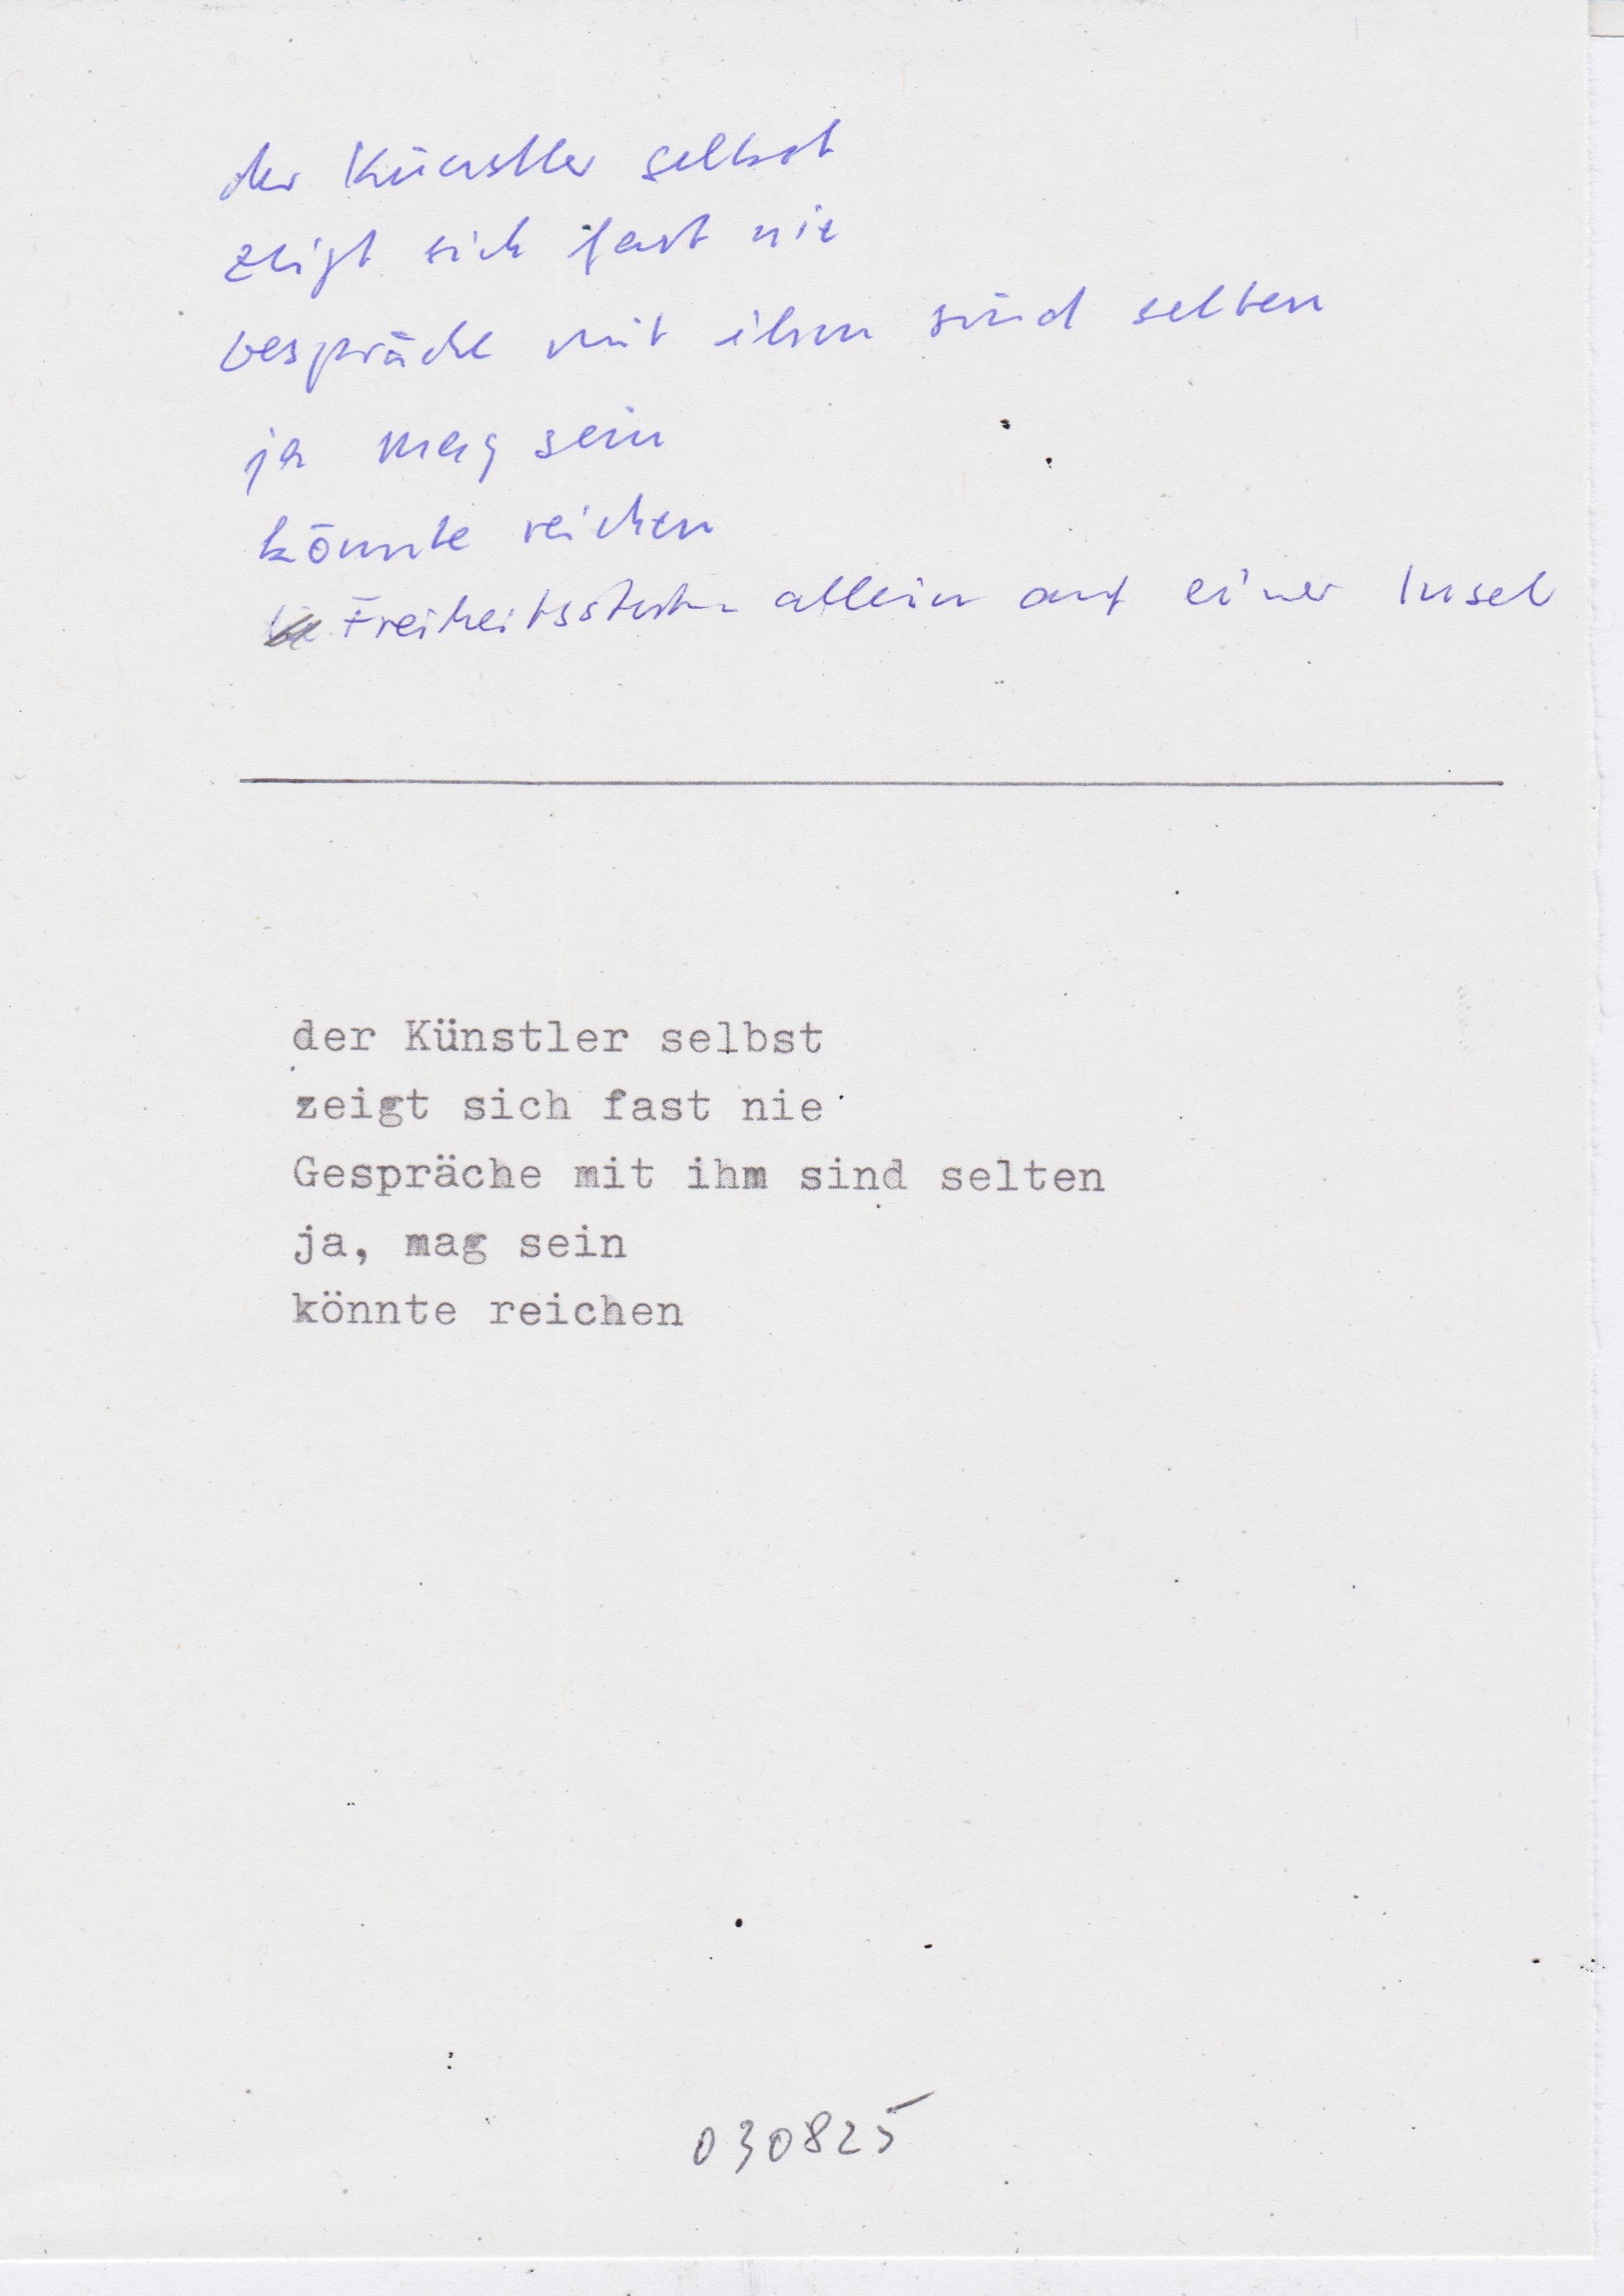 der Künstler selbst
zeigt sich fast nie
Gespräche mit ihm sind selten
ja mag sein
könnte reichen
Freiheitsstatue allein auf einer Insel
der Künstler selbst
zeigt sich fast nie
Gespräche mit ihm sind selten
ja, mag sein
könnte reichen
030825